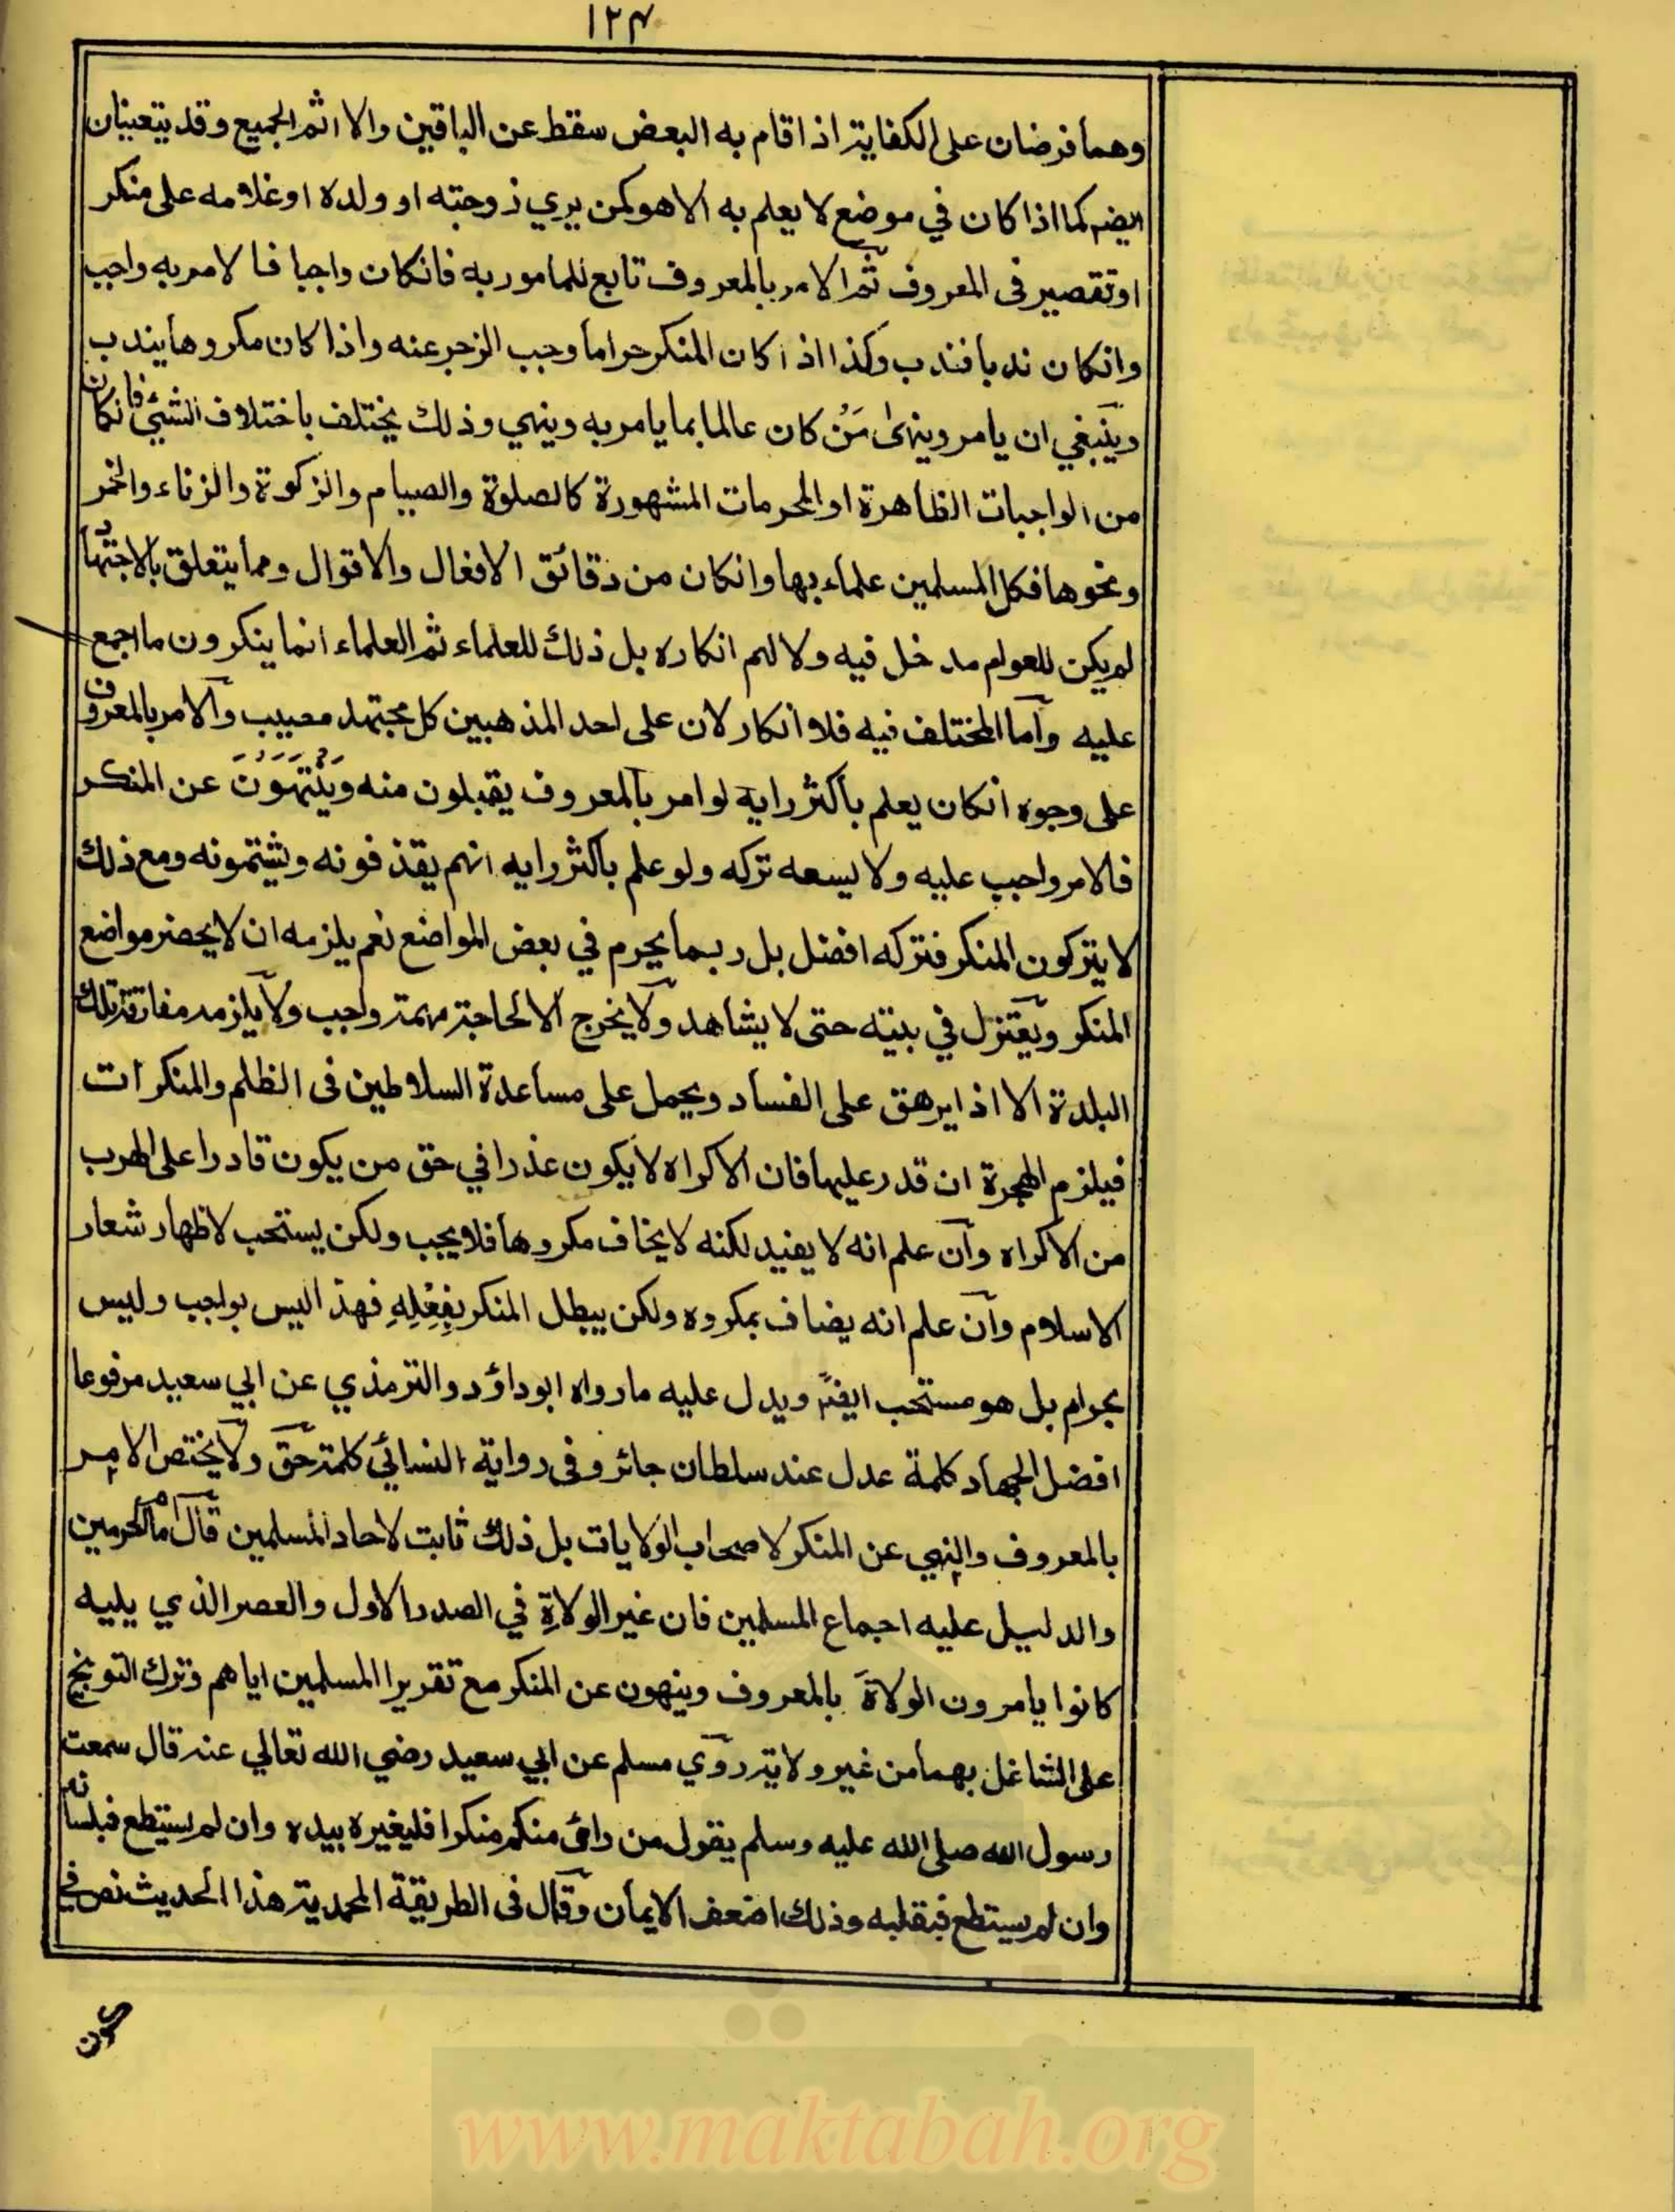 ١٢٣
وهما فرضان على الكفاية اذا قام به البعض سقط عن الباقين والا اثم الجميع وقد يتعينان
ايضم كما اذا كان في موضع لا يعلم به الا هو كمن يري زوجته او ولده او غلامه على منكر
او تقصير فى المعروف ثم الامر بالمعروف تابع للمامور به فانكان واجبا فالامر به واجب
وانكان ندبا فندب وكذا اذا كان المنكر حراما وجب الزجر عنه واذا كان مكروها يندب
وينبغي ان يامر وينهى مَنْ كان عالما بما يامر به وينهي وذلك يختلف باختلاف الشيئ فانكان
من الواجبات الظاهرة او المحرمات المشهورة كالصلوة والصيام والزكوة والزناء والخمر
ونحوها فكل المسلمين علماء بها وانكان من دقائق الافعال والاقوال ومما يتعلق بالاجتهاد
لم يكن للعوام مدخل فيه ولا لهم انكاره بل ذلك للعلماء ثم العلماء انما ينكرون ما اجمع
عليه واما المختلف فيه فلا انكار لان على احد المذهبين كل مجتهد مصيب والامر بالمعروف
على وجوه انكان يعلم باكثر رايه لو امر بالمعروف يقبلون منه وَيَنْتَهَوُنَ عن المنكر
فالامر واجب عليه ولا يسعه تركه ولو علم باكثر رايه انهم يقذفونه ويشتمونه ومع ذلك
لا يتركون المنكر فتركه افضل بل ربما يحرم في بعض المواضع نعم يلزمه ان لا يحضر مواضع
المنكر ويعتزل في بيته حتى لا يشاهد ولا يخرج الا لحاجة مهمة وواجب ولا يلزمه مفارقة تلك
البلدة الا اذا يرهق على الفساد ويحمل على مساعدة السلاطين فى الظلم والمنكرات
فيلزم الهجرة ان قدر عليها فان الاكراه لا يكون عذرا في حق من يكون قادرا على الهرب
من الاكراه وان علم انه لا يفيد لكنه لا يخاف مكروها فلا يجب ولكن يستحب لاظهار شعار
الاسلام وان علم انه يضاف بمكروه ولكن يبطل المنكر بِفِعْلِهِ فهذا ليس بواجب وليس
بحرام بل هو مستحب ايضًا ويدل عليه ما رواه ابو داؤد والترمذي عن ابي سعيد مرفوعا
افضل الجهاد كلمة عدل عند سلطان جائر وفى رواية النسائي كلمة حق ولا يختص الامر
بالمعروف والنهي عن المنكر لاصحاب الولايات بل ذلك ثابت لاحاد المسلمين قال امام الحرمين
والدليل عليه اجماع المسلمين فان غير الولاةِ في الصدر الاول والعصر الذي يليه
كانوا يامرون الولاةَ بالمعروف وينهون عن المنكر مع تقرير المسلمين اياهم وترك التوبيخ
على الشاغل بهما من غير ولاية روي مسلم عن ابي سعيد رضي الله تعالي عنه قال سمعت
رسول الله صلى الله عليه وسلم يقول من رائ منكم منكرا فليغيره بيده وان لم يستطع فبلسانه
وان لم يستطع فبقلبه وذلك اضعف الايمان وقال فى الطريقة المحمدية هذا الحديث نص في
كون
www.maktabah.org